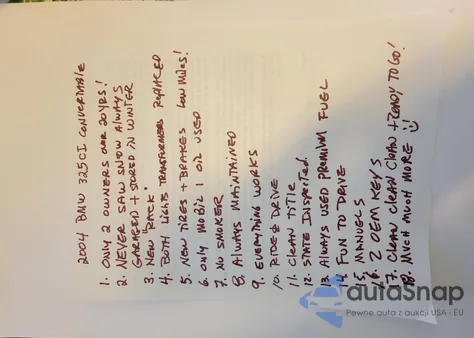 2004 BMW 325CI CONVERTABLE
1. ONLY 2 OWNERS OVER 20 YRS!
2. NEVER SAW SNOW ALWAYS
GARAGED + STORED IN WINTER
3. NEW RACK
4. BOTH LIGHTS TRANSFORMERS REPLACED
5. NEW TIRES + BRAKES LOW MILES!
6. ONLY MOBIL 1 OIL USED
7. NO SMOKER
8. ALWAYS MAINTAINED
9. EVERYTHING WORKS
10. RIDE & DRIVE
11. CLEAN TITLE
12. STATE INSPECTED.
13. ALWAYS USED PREMIUM FUEL
14. FUN TO DRIVE
15. MANUELS
16. 2 OEM KEYS
17. CLEAN CLEAN CLEAN + READY TO GO!
18. MUCH MUCH MORE
autaSnap
Pewne auta z aukcji USA - EU